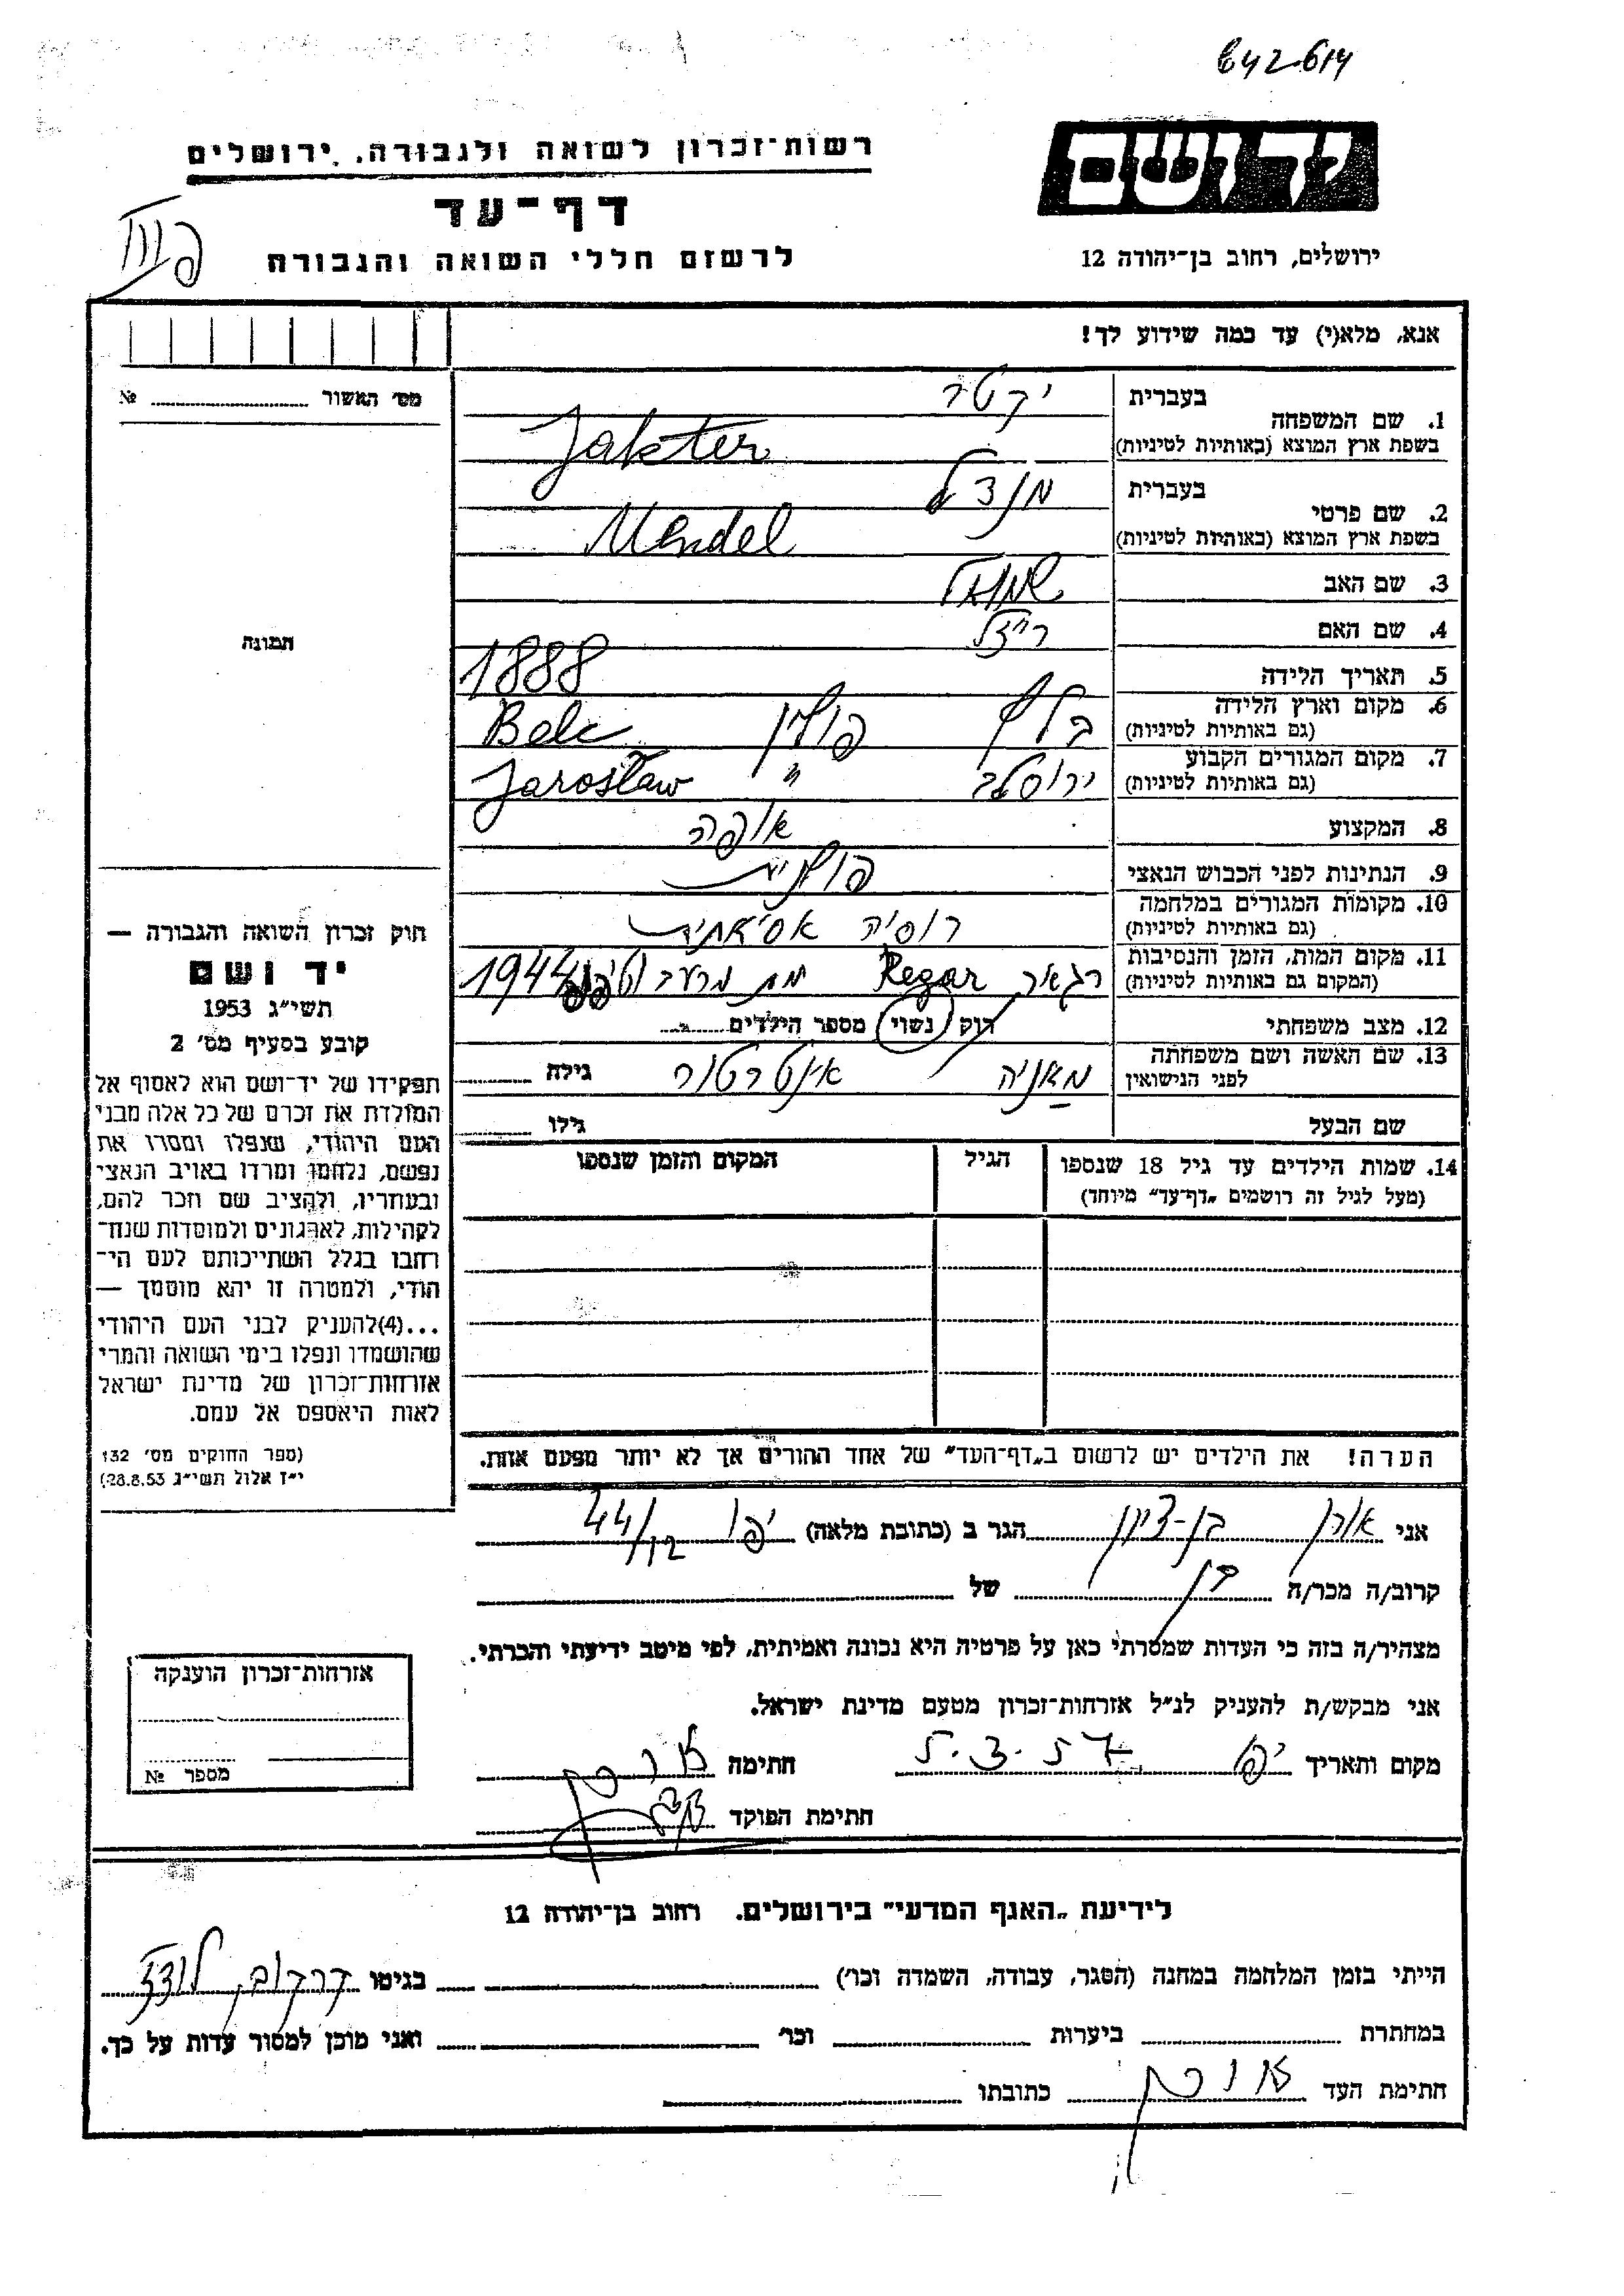 642614
יד ושם
רשות-זכרון לשואה ולגבורה, ירושלים
דף-עד
לרשום חללי השואה והגבורה
ירושלים, רחוב בן-יהודה 12
אנא, מלא(י) עד כמה שידוע לך!
1. שם המשפחה בעברית יקטר
בשפת ארץ המוצא (באותיות לטיניות) Jakter
2. שם פרטי בעברית מנדל
בשפת ארץ המוצא (באותיות לטיניות) Mendel
3. שם האב שמואל
4. שם האם רייזל
5. תאריך הלידה 1888
6. מקום וארץ הלידה (גם באותיות לטיניות) בלץ פולין Belc
7. מקום המגורים הקבוע (גם באותיות לטיניות) ירוסלב " Jarosław
8. המקצוע אופה
9. הנתינות לפני הכבוש הנאצי פולנית
10. מקומות המגורים במלחמה (גם באותיות לטיניות) רוסיה אסיאתית
11. מקום המות, הזמן והנסיבות (המקום גם באותיות לטיניות) רגאר Regar מת מרעב וטיפוס 1944
12. מצב משפחתי רוק/נשוי מספר הילדים
13. שם האשה ושם משפחתה לפני הנישואין מאניה גילה
שם הבעל גילו
14. שמות הילדים עד גיל 18 שנספו הגיל המקום והזמן שנספו
(מעל לגיל זה רושמים "דף-עד" מיוחד)
הערה! את הילדים יש לרשום ב"דף-העד" של אחד ההורים אך לא יותר מפעם אחת.
מס' האשור №
תמונה
חוק זכרון השואה והגבורה —
יד ושם
תשי"ג 1953
קובע בסעיף מס' 2
תפקידו של יד-ושם הוא לאסוף אל
המולדת את זכרם של כל אלה מבני
העם היהודי, שנפלו ומסרו את
נפשם, נלחמו ומרדו באויב הנאצי
ובעוזריו, ולהציב שם וזכר להם,
לקהילות, לארגונים ולמוסדות שנח-
רבו בגלל השתייכותם לעם הי-
הודי, ולמטרה זו יהא מוסמך —
...(4) להעניק לבני העם היהודי
שהושמדו ונפלו בימי השואה והמרי
אזרחות-זכרון של מדינת ישראל
לאות היאספם אל עמם.
(ספר החוקים מס' 132
י"ז אלול תשי"ג 28.8.53)
אני אורן בן-ציון הגר ב (כתובת מלאה) יפו 44/
קרוב/ה מכר/ה בן של
מצהיר/ה בזה כי העדות שמסרתי כאן על פרטיה היא נכונה ואמיתית, לפי מיטב ידיעתי והכרתי.
אני מבקש/ת להעניק לנ"ל אזרחות-זכרון מטעם מדינת ישראל.
מקום ותאריך יפו 5.3.57 חתימה
חתימת הפוקד
אזרחות-זכרון הוענקה
מספר №
לידיעת "האגף המדעי" בירושלים. רחוב בן-יהודה 12
הייתי בזמן המלחמה במחנה (הסגר, עבודה, השמדה וכו') בגיטו לודז
במחתרת ביערות וכו' ואני מוכן למסור עדות על כך.
חתימת העד כתובתו